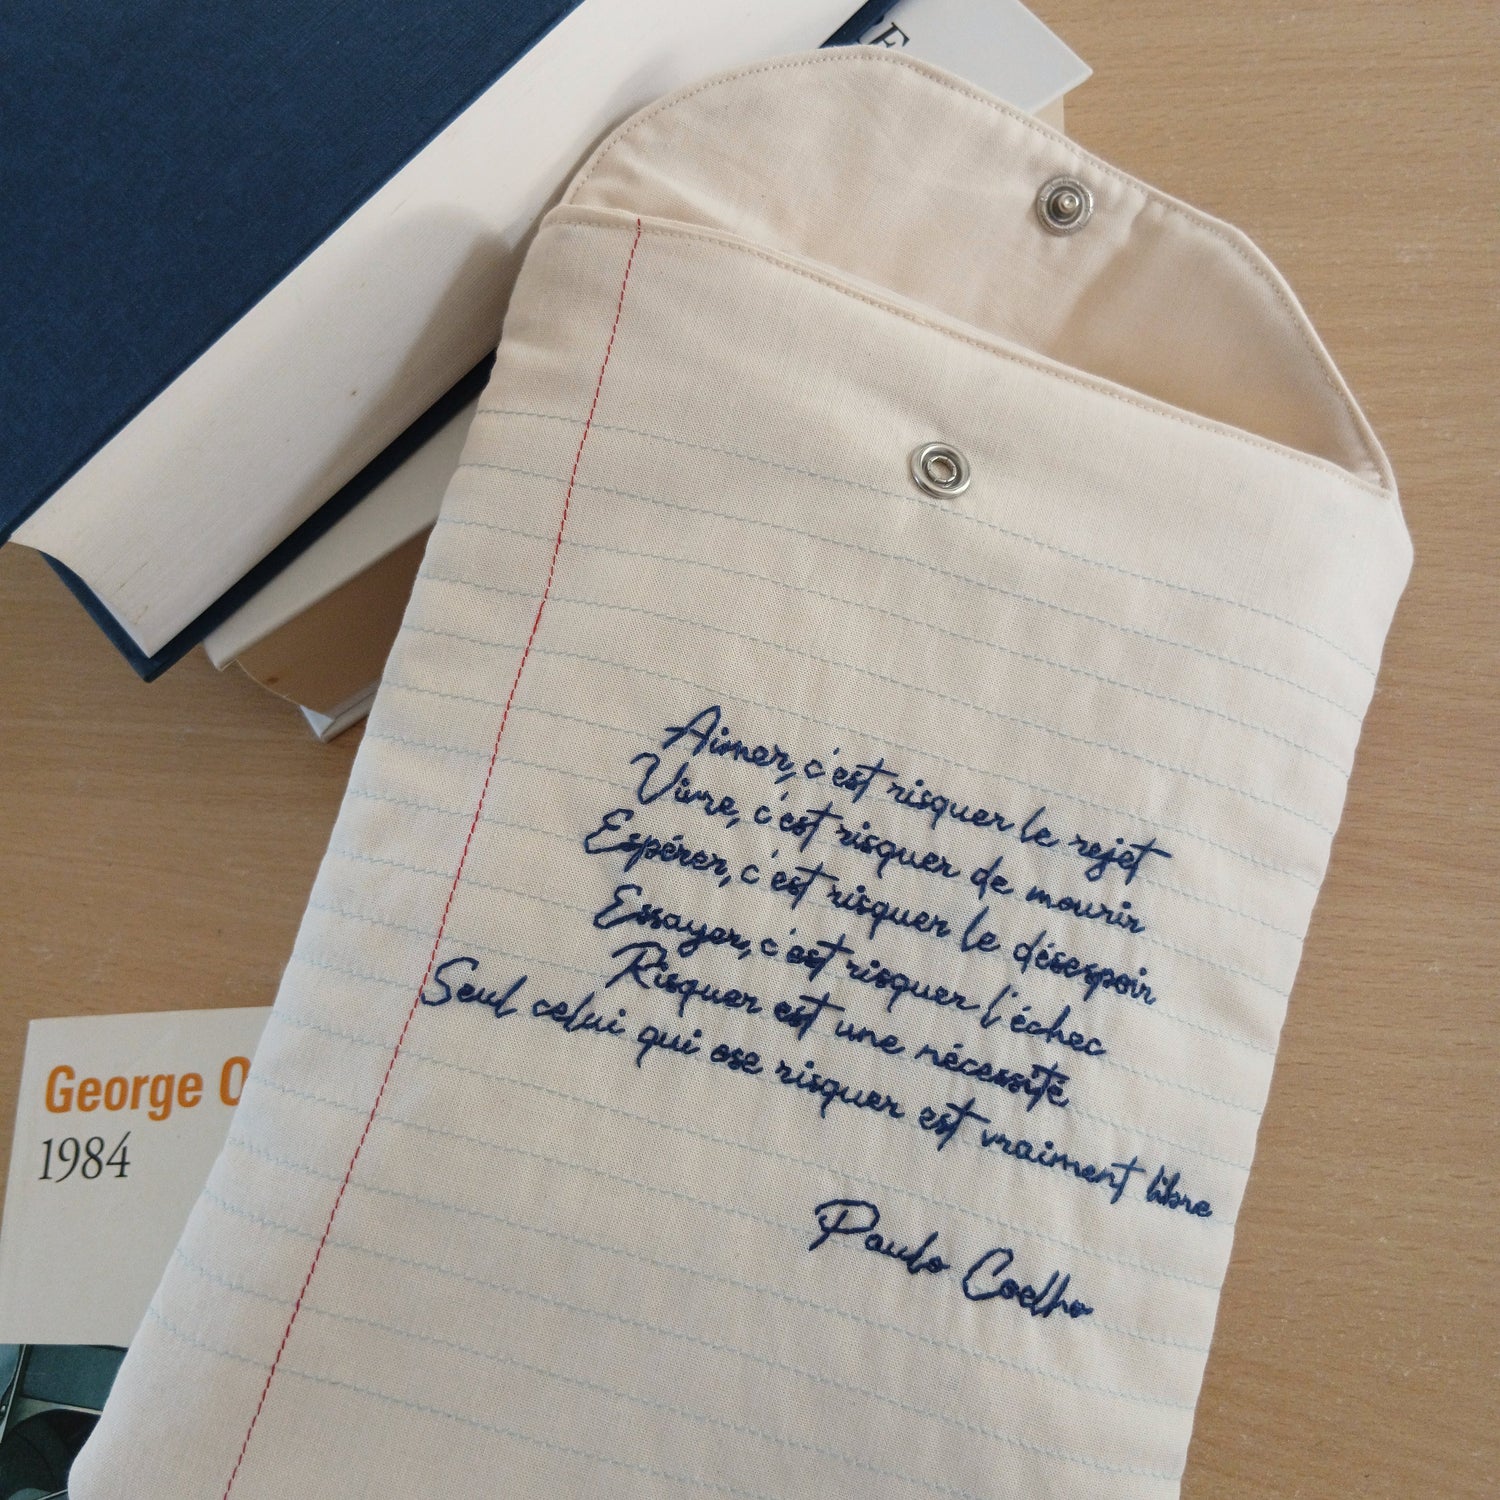 E
Aimer, c'est risquer le rejet
Vivre, c'est risquer de mourir
Espérer, c'est risquer le désespoir
Essayer, c'est risquer l'échec
Risquer est une nécessité
Seul celui qui ose risquer est vraiment libre
Paulo Coelho
George O
1984